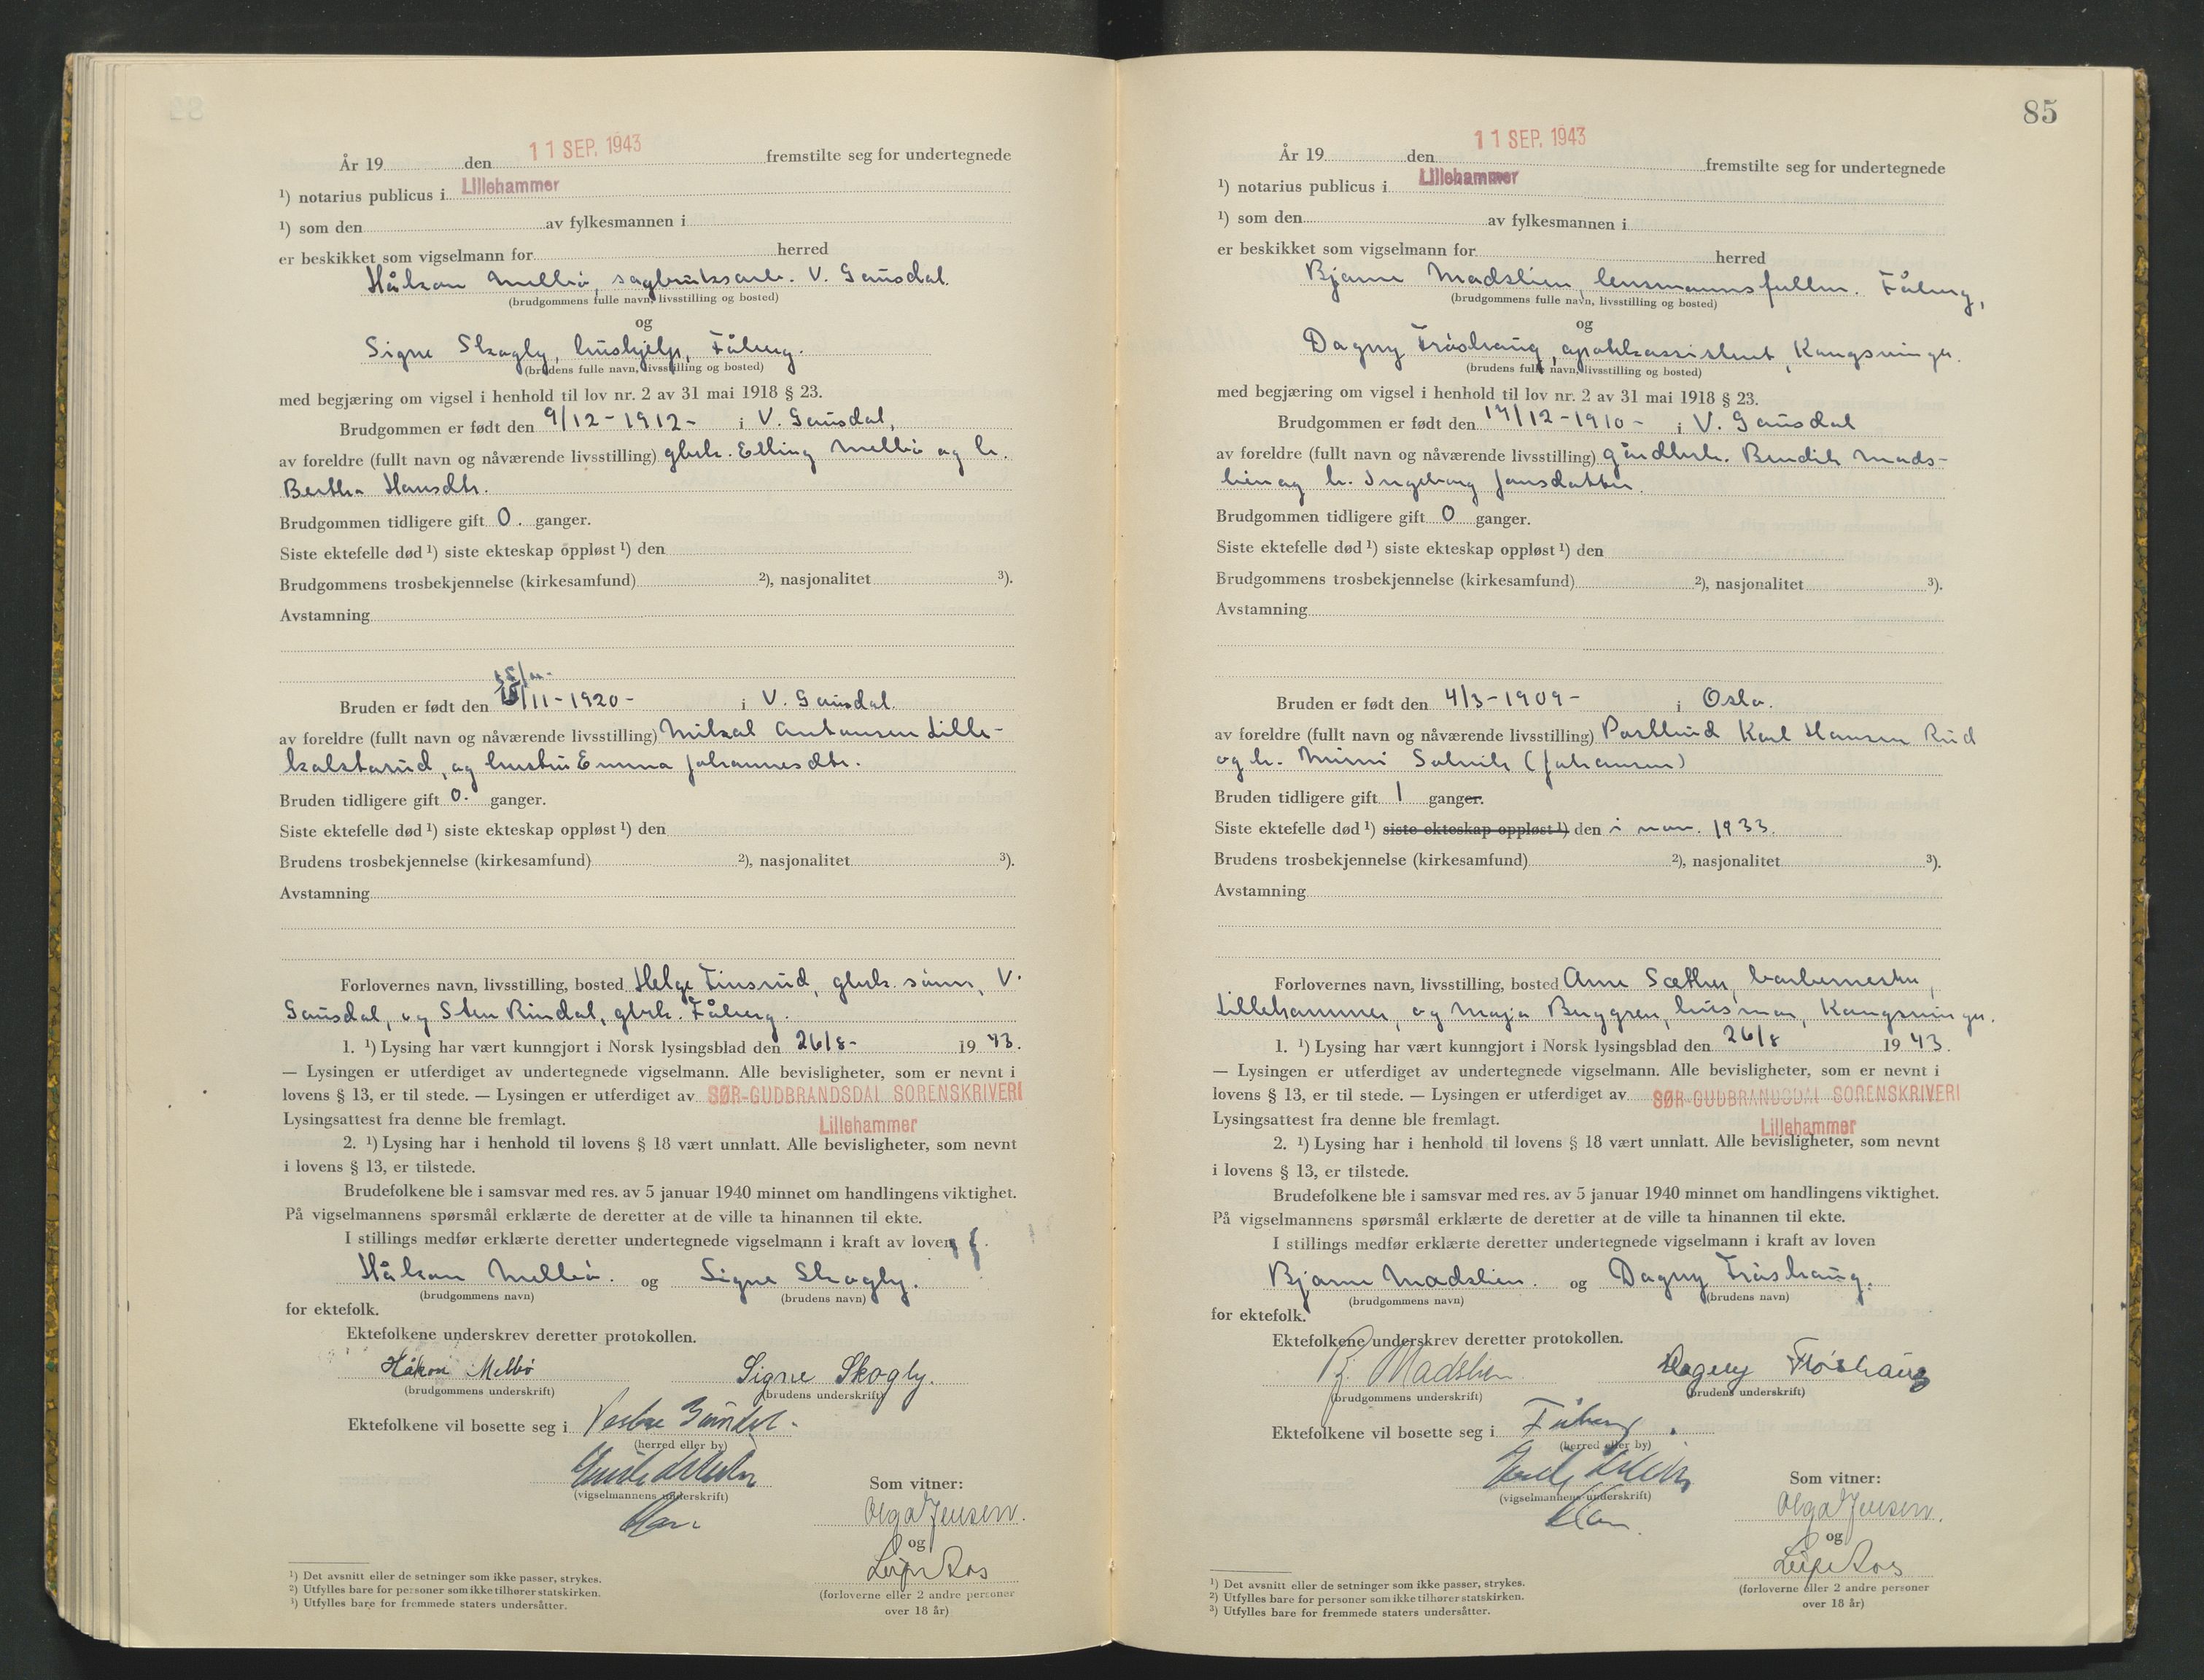 År 19 den 11 SEP. 1943 fremstilte seg for undertegnede
¹) notarius publicus i Lillehammer
¹) som den av fylkesmannen i
er beskikket som vigselmann for herred
Håkon Mellbö, sagbruksarb. V. Gausdal.
(brudgommens fulle navn, livsstilling og bosted)
og
Signe Skogly, hushjelp, Fåberg.
(brudens fulle navn, livsstilling og bosted)
med begjæring om vigsel i henhold til lov nr. 2 av 31 mai 1918 § 23.
Brudgommen er født den 9/12-1912- i V. Gausdal,
av foreldre (fullt navn og nåværende livsstilling) gbrk. Elling Mellbö og h.
Bertha Hansdtr.
Brudgommen tidligere gift 0. ganger.
Siste ektefelle død ¹) siste ekteskap oppløst ¹) den
Brudgommens trosbekjennelse (kirkesamfund) ²), nasjonalitet ³).
Avstamning
Bruden er født den /11-1920- i V. Gausdal.
av foreldre (fullt navn og nåværende livsstilling) Mikal Antonsen Lille-
kolstarud, og hustru Emma Johannesdtr.
Bruden tidligere gift 0. ganger.
Siste ektefelle død ¹) siste ekteskap oppløst ¹) den
Brudens trosbekjennelse (kirkesamfund) ²), nasjonalitet ³).
Avstamning
Forlovernes navn, livsstilling, bosted Helge Tinsrud, gbrk. sönn, V.
Gausdal, og Sten Rindal, gbrk. Fåberg.
1. ¹) Lysing har vært kunngjort i Norsk lysingsblad den 26/8- 1943.
— Lysingen er utferdiget av undertegnede vigselmann. Alle bevisligheter, som er nevnt i
lovens § 13, er til stede. — Lysingen er utferdiget av SØR-GUDBRANDSDAL SORENSKRIVERI
Lysingsattest fra denne ble fremlagt. Lillehammer
2. ¹) Lysing har i henhold til lovens § 18 vært unnlatt. Alle bevisligheter, som nevnt
i lovens § 13, er tilstede.
Brudefolkene ble i samsvar med res. av 5 januar 1940 minnet om handlingens viktighet.
På vigselmannens spørsmål erklærte de deretter at de ville ta hinannen til ekte.
I stillings medfør erklærte deretter undertegnede vigselmann i kraft av loven
Håkon Mellbö. og Signe Skogly.
(brudgommens navn) (brudens navn)
for ektefolk.
Ektefolkene underskrev deretter protokollen.
Håkon Mellbö Signe Skogly.
(brudgommens underskrift) (brudens underskrift)
Ektefolkene vil bosette seg i Vestre Gausdal.
(herred eller by)
(vigselmannens underskrift)
Som vitner:
Olga Jensen.
og
Leif Aas
(forloverne eller 2 andre personer
over 18 år)
¹) Det avsnitt eller de setninger som ikke passer, strykes.
²) Utfylles bare for personer som ikke tilhører statskirken.
³) Utfylles bare for fremmede staters undersåtter.
85
År 19 den 11 SEP. 1943 fremstilte seg for undertegnede
¹) notarius publicus i Lillehammer
¹) som den av fylkesmannen i
er beskikket som vigselmann for herred
Bjarne Madslien, lensmannsfullm. Fåberg,
(brudgommens fulle navn, livsstilling og bosted)
og
Dagny Fröshaug, apotekassistent, Kongsvinger.
(brudens fulle navn, livsstilling og bosted)
med begjæring om vigsel i henhold til lov nr. 2 av 31 mai 1918 § 23.
Brudgommen er født den 14/12-1910- i V. Gausdal
av foreldre (fullt navn og nåværende livsstilling) gårdbrk. Bendik Mads-
lien og h. Ingeborg Jonsdatter.
Brudgommen tidligere gift 0 ganger.
Siste ektefelle død ¹) siste ekteskap oppløst ¹) den
Brudgommens trosbekjennelse (kirkesamfund) ²), nasjonalitet ³).
Avstamning
Bruden er født den 4/3-1909- i Oslo.
av foreldre (fullt navn og nåværende livsstilling) Postbud Karl Hansen Rud
og h. Mimi Solvik (Johansen)
Bruden tidligere gift 1 ganger.
Siste ektefelle død ¹) siste ekteskap oppløst ¹) den i nov. 1933.
Brudens trosbekjennelse (kirkesamfund) ²), nasjonalitet ³).
Avstamning
Forlovernes navn, livsstilling, bosted Arne Sæther, barbermester,
Lillehammer, og Maja Berggren, husmor, Kongsvinger.
1. ¹) Lysing har vært kunngjort i Norsk lysingsblad den 26/8 1943.
— Lysingen er utferdiget av undertegnede vigselmann. Alle bevisligheter, som er nevnt i
lovens § 13, er til stede. — Lysingen er utferdiget av SØR-GUDBRANDSDAL SORENSKRIVERI
Lysingsattest fra denne ble fremlagt. Lillehammer
2. ¹) Lysing har i henhold til lovens § 18 vært unnlatt. Alle bevisligheter, som nevnt
i lovens § 13, er tilstede.
Brudefolkene ble i samsvar med res. av 5 januar 1940 minnet om handlingens viktighet.
På vigselmannens spørsmål erklærte de deretter at de ville ta hinannen til ekte.
I stillings medfør erklærte deretter undertegnede vigselmann i kraft av loven
Bjarne Madslien. og Dagny Fröshaug.
(brudgommens navn) (brudens navn)
for ektefolk.
Ektefolkene underskrev deretter protokollen.
B. Madslien Dagny Fröshaug
(brudgommens underskrift) (brudens underskrift)
Ektefolkene vil bosette seg i Fåberg.
(herred eller by)
(vigselmannens underskrift)
Som vitner:
Olga Jensen.
og
Leif Aas
(forloverne eller 2 andre personer
over 18 år)
¹) Det avsnitt eller de setninger som ikke passer, strykes.
²) Utfylles bare for personer som ikke tilhører statskirken.
³) Utfylles bare for fremmede staters undersåtter.